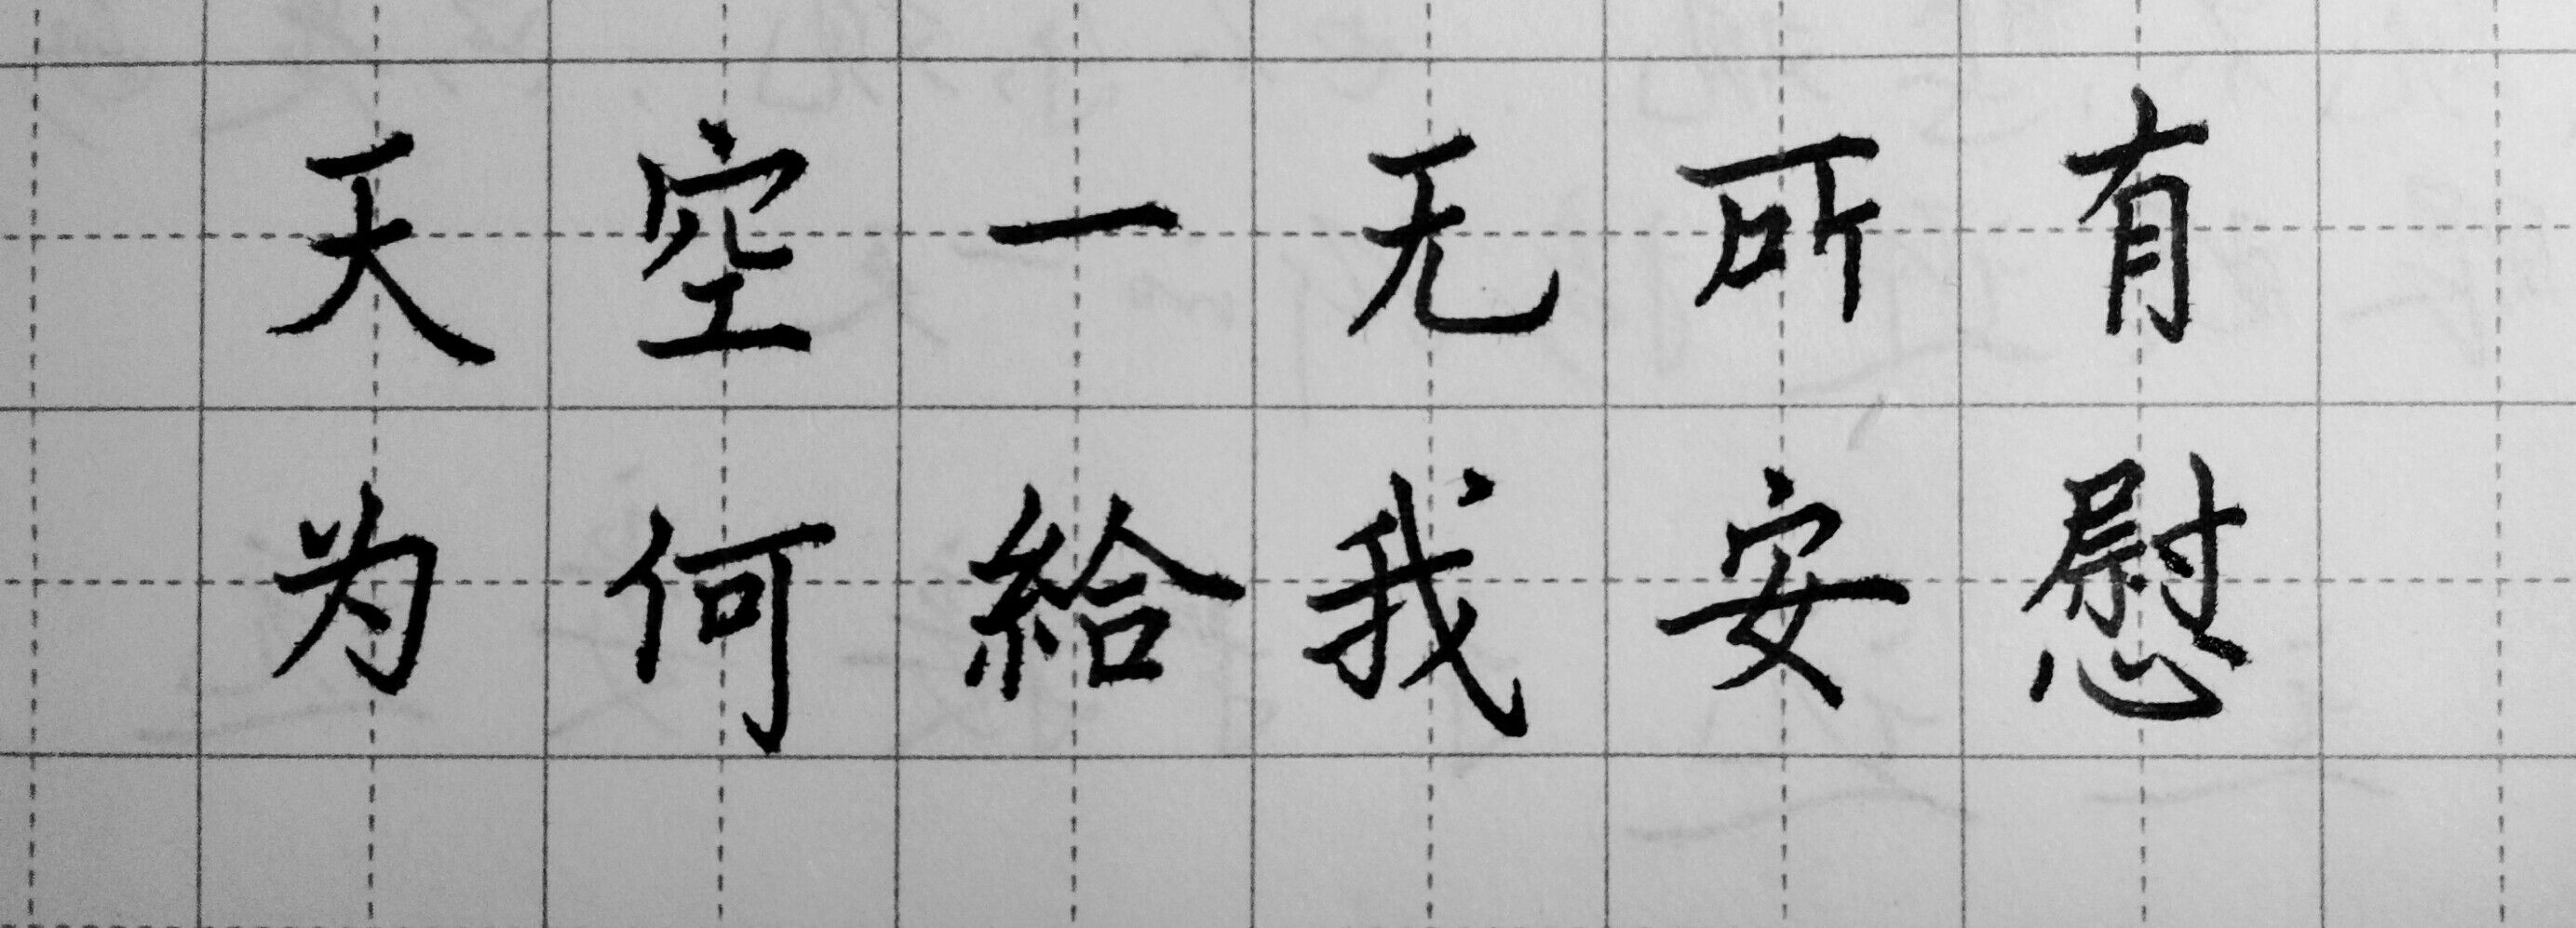 天空一无所有
为何給我安慰